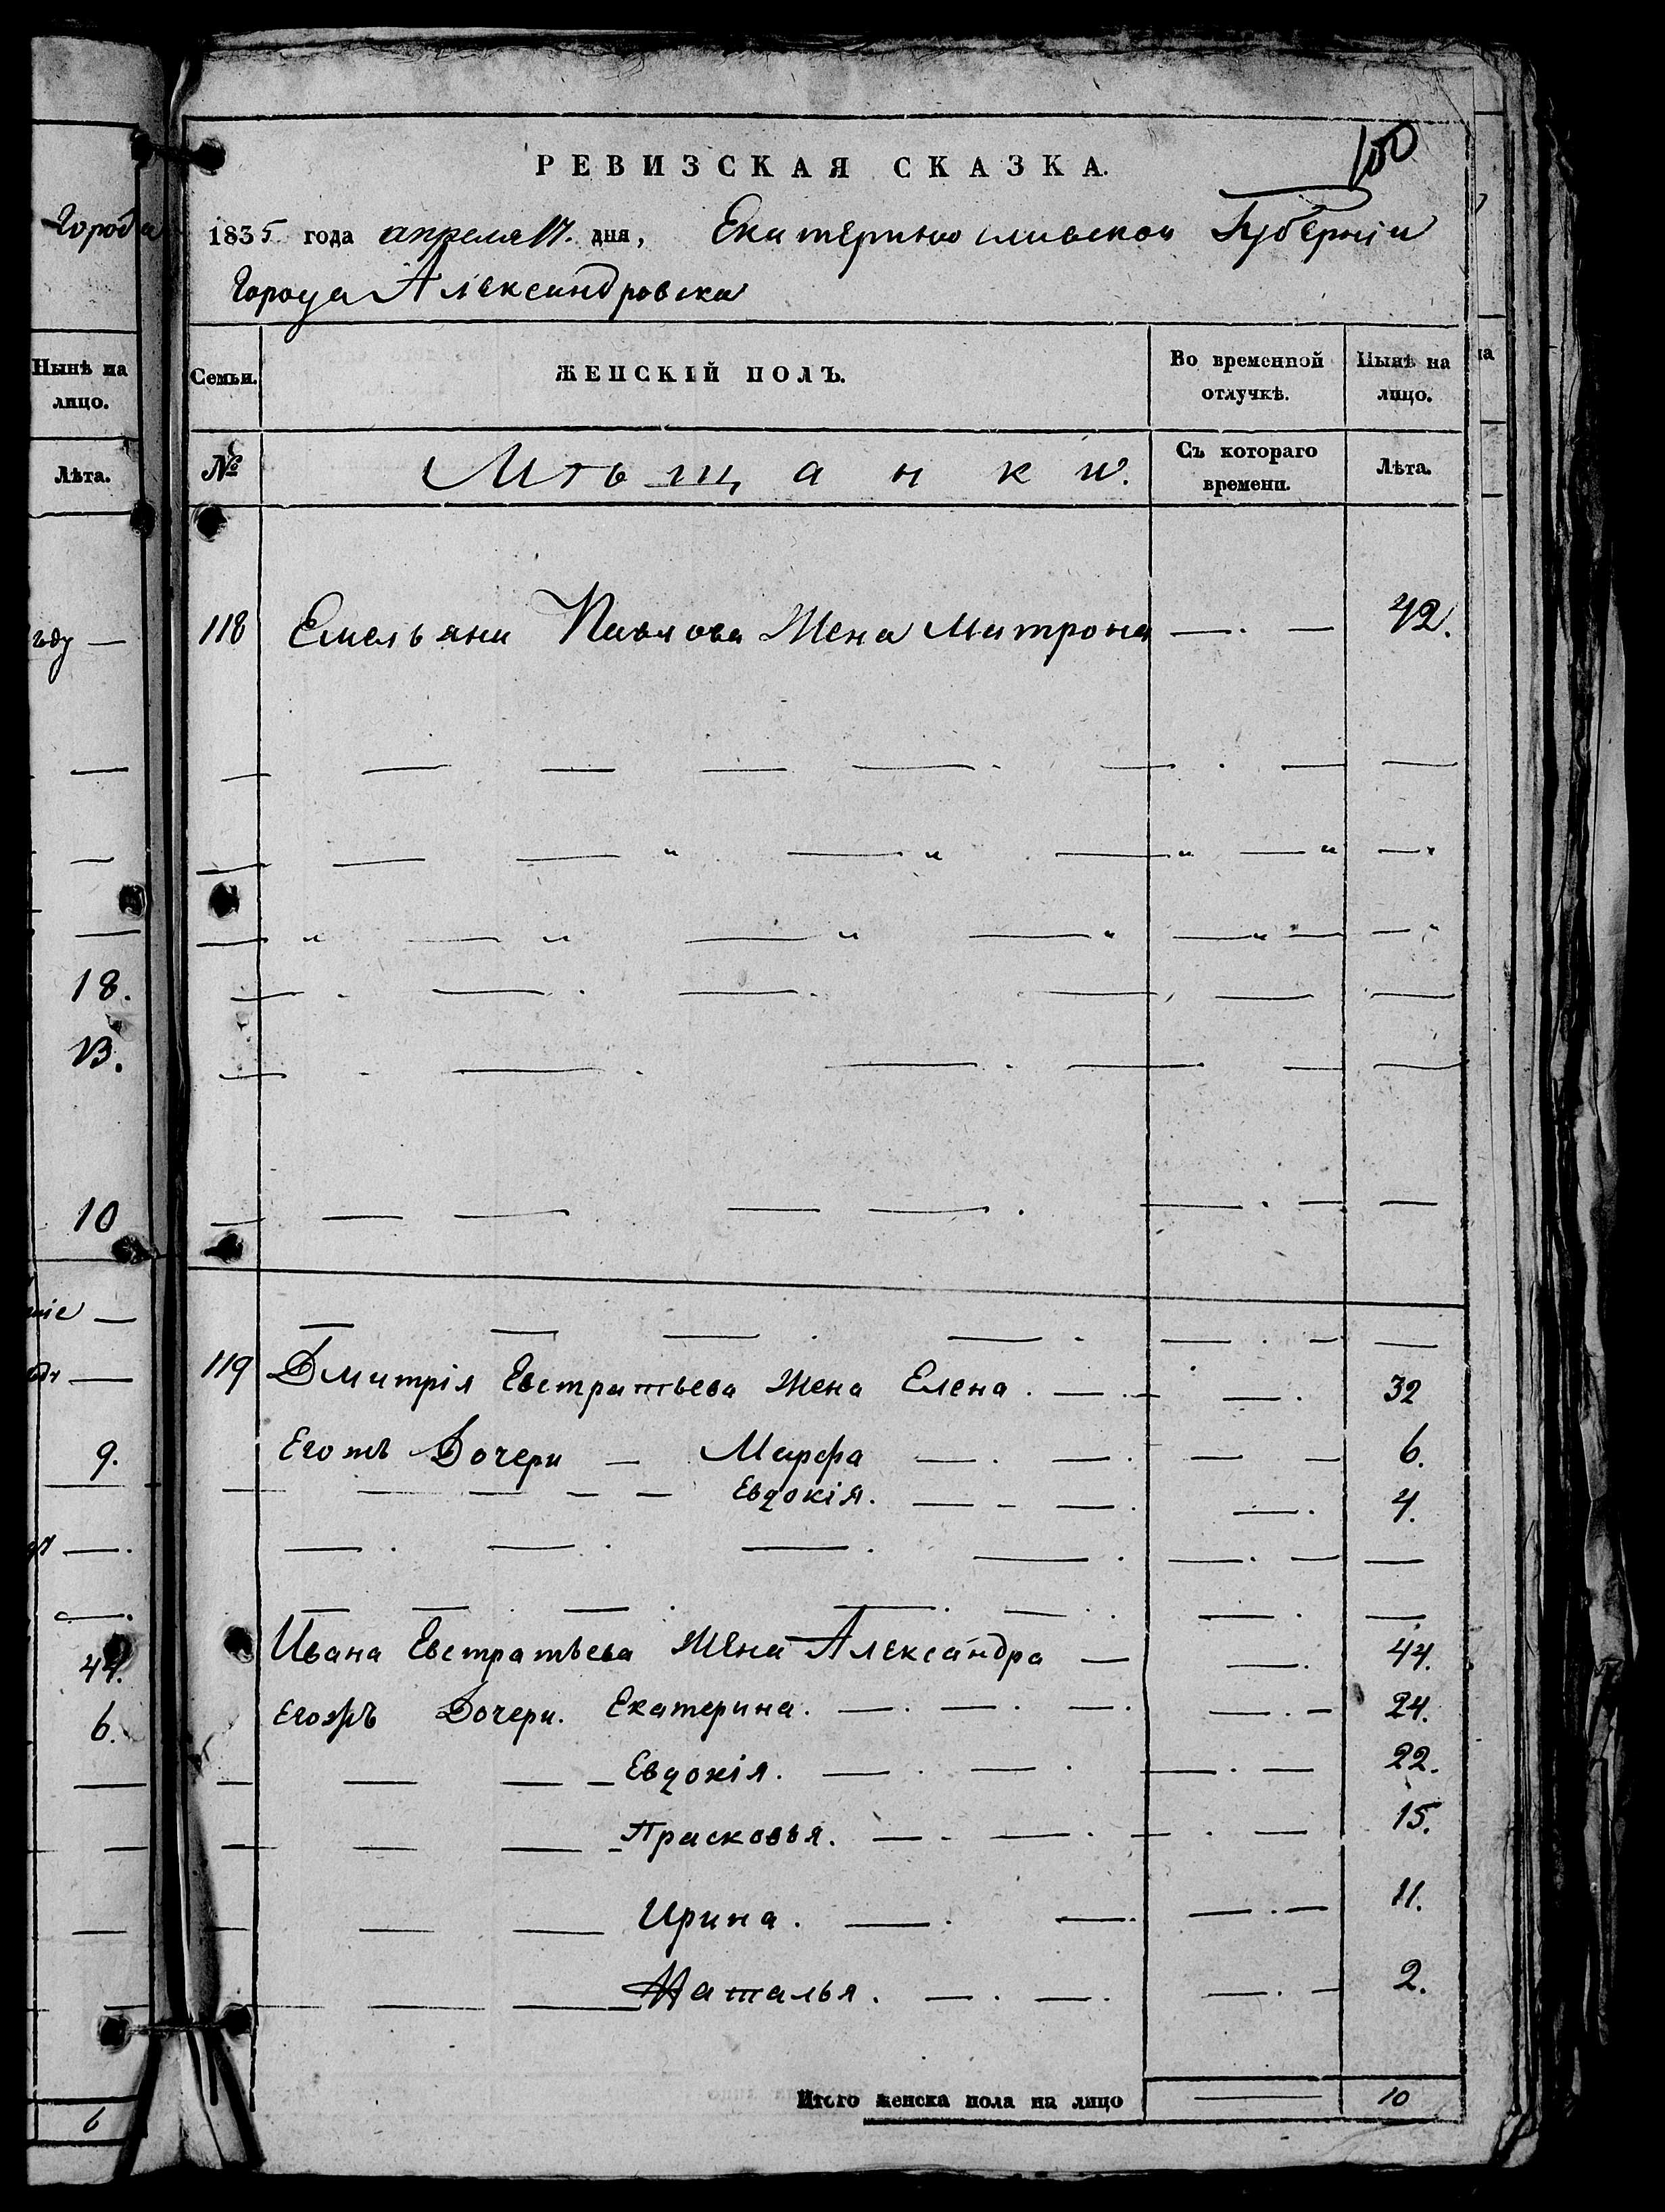 100
РЕВИЗСКАЯ СКАЗКА.
1835 года апреля 17. дня, Екатеринославской Губерніи
Города Александровска
Семьи. ЖЕНСКІЙ ПОЛЪ. Во временной отлучкѣ. Нынѣ на лицо.
№ Мѣщанки. Съ котораго времени. Лѣта.
118 Емельяна Павлова Жена Матрона — . — 42.
119 Дмитрія Евстратьева Жена Елена . — . — — . 32
Егожъ Дочери — Марфа — . — . — — 6.
Евдокія . — - — . — . 4.
Ивана Евстратьева Жена Александра — — . 44.
Егожъ Дочери . Екатерина . — . — . — . — . — 24.
Евдокія . — . — . — . — 22.
Прасковья . — . — . — . — 15.
Ирина . — . — . — . — 11.
Наталья . — . — . — . — 2.
Итого женска пола на лицо — 10
Города
Нынѣ на лицо.
Лѣта.
году —
18.
13.
10
9.
44.
6.
6